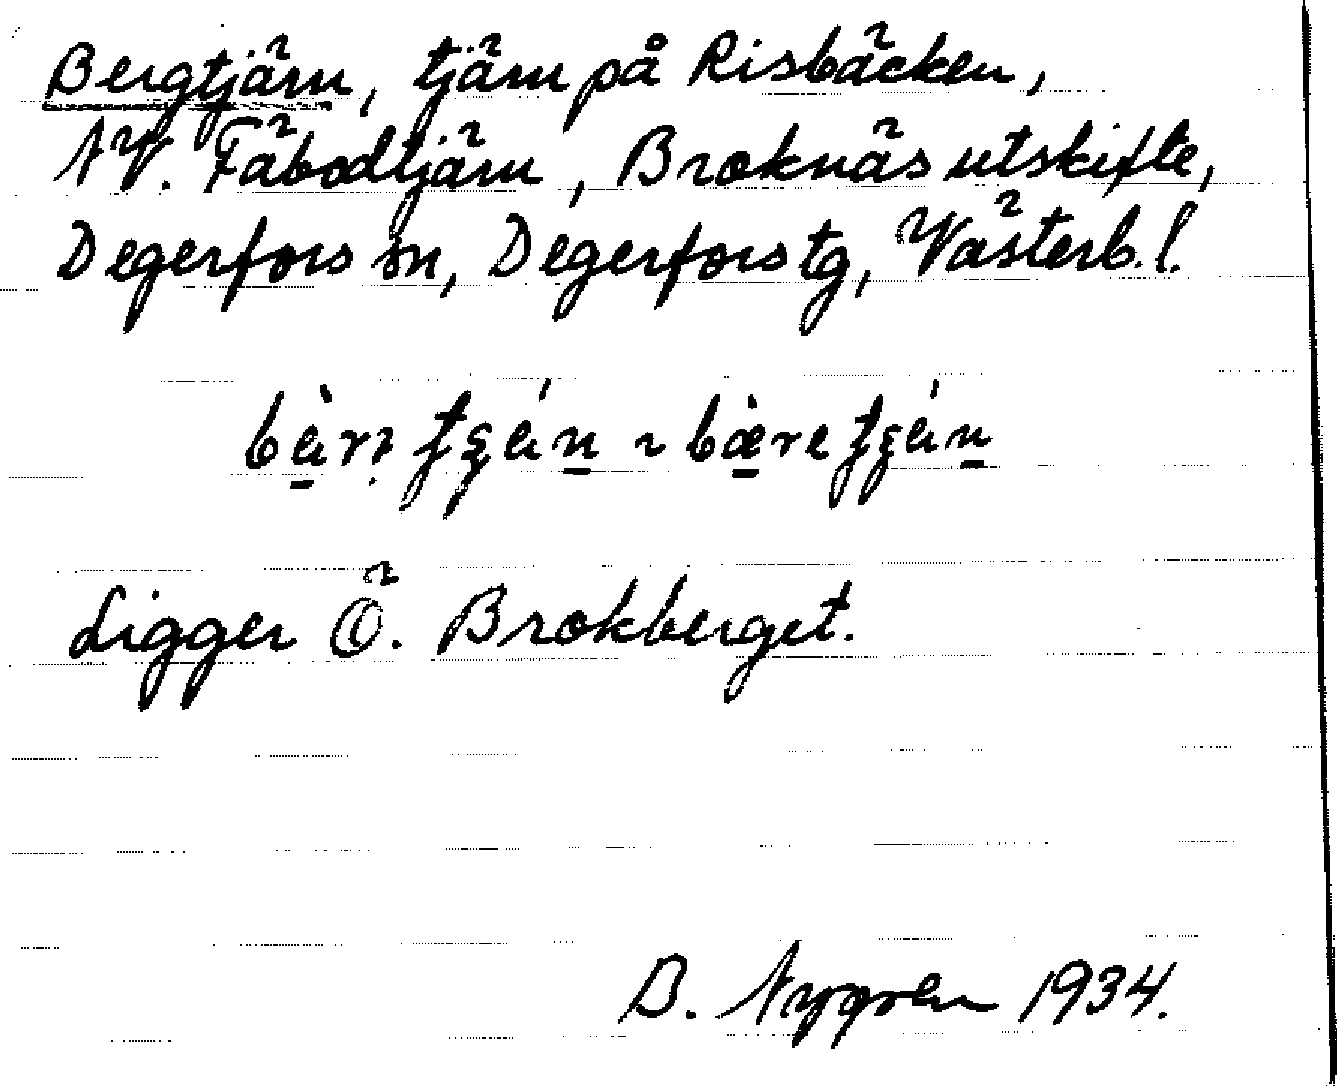 Bergtjärn, tjärn på Risbäcken,
NV. Fäbodtjärn, Broknäs utskifte,
Degerfors sn, Degerfors tg, Västerb. l.
Ligger Ö. Brokberget.
B. Nygren 1934.